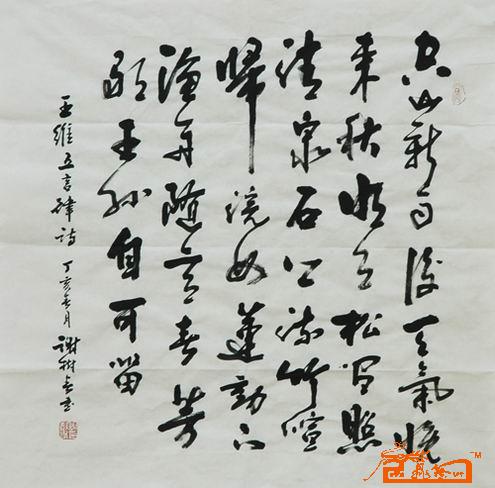 空山新雨後天氣晚
來秋明月松间照
清泉石上流竹喧
歸浣女蓮動下
漁舟隨意春芳
歇王孫自可留
王維五言律詩 丁亥 月 谢树 书